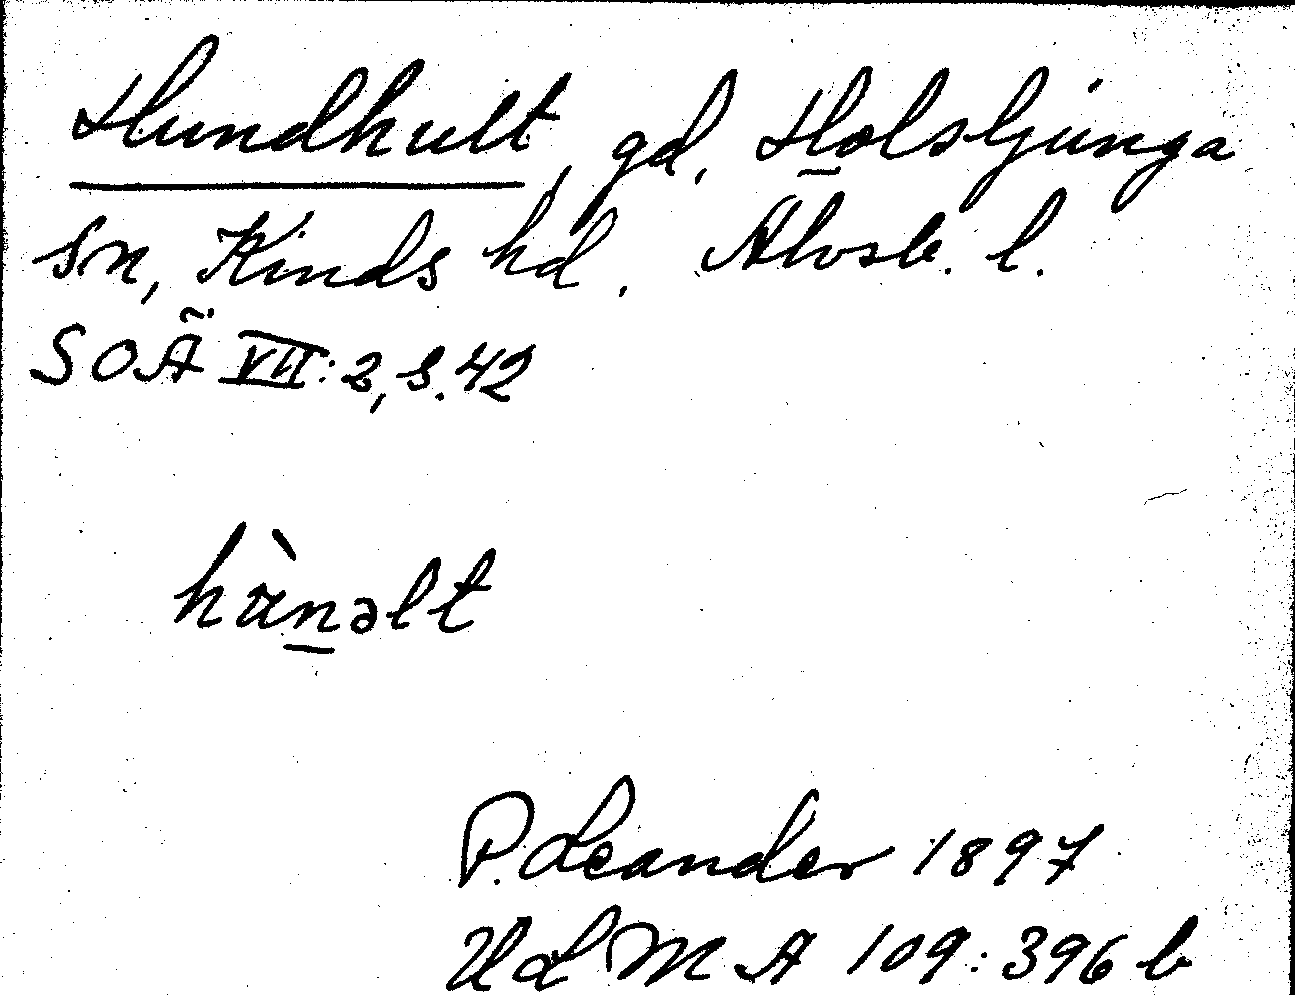 Hundhult, gd, Holsljunga
sn, Kinds hd. Älvsb. l.
SOÄ VII:2, s. 42
hànəlt
P. Leander 1897
ULMA 109:396 b